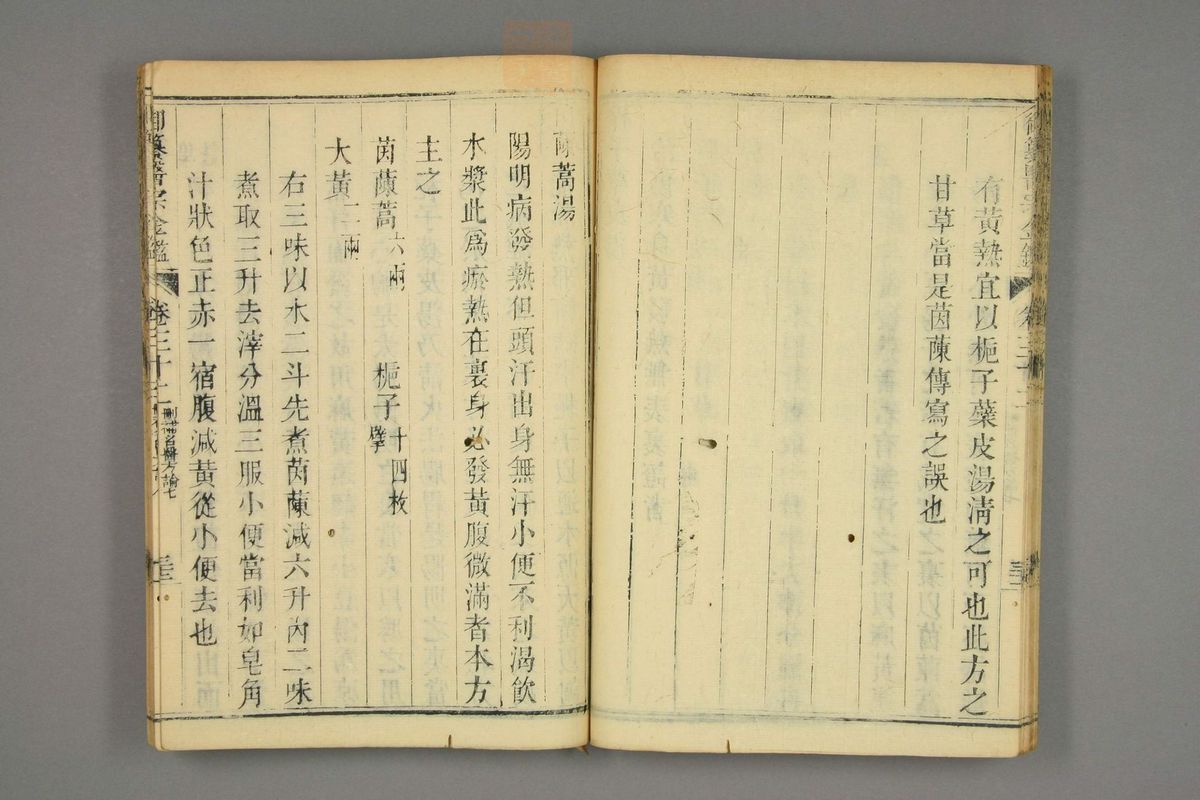 有黃熱宜以梔子蘗皮湯清之可也此方之
甘草當是茵蔯傳寫之誤也
蔯蒿湯
陽明病發熱但頭汗出身無汗小便不利渴飲
水漿此為瘀熱在裏身必發黃腹微滿者本方
主之
茵蔯蒿六兩 梔子十四枚擘
大黃二兩
右三味以水二斗先煮茵蔯減六升內二味
煮取三升去滓分溫三服小便當利如皂角
汁狀色正赤一宿腹減黃從小便去也
御纂醫宗金鑑 卷三十二 刪補名醫方論七